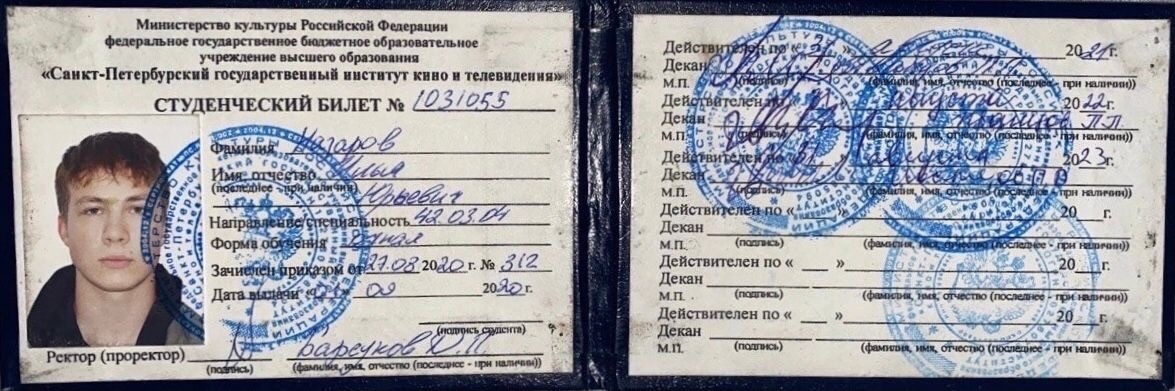 Министерство культуры Российской Федерации
федеральное государственное бюджетное образовательное
учреждение высшего образования
«Санкт-Петербургский государственный институт кино и телевидения»
СТУДЕНЧЕСКИЙ БИЛЕТ № 1031055
Фамилия
Имя, отчество Илья
(последнее - при наличии)
Юрьевич
Направление/специальность 42.03.04
Форма обучения Очная
Зачислен приказом от 27.08 2020 г. № 312
Дата выдачи « » 09 2020 г.
(подпись студента)
Ректор (проректор)
(подпись) (фамилия, имя, отчество (последнее - при наличии))
Действителен по « 31 » августа 2021 г.
Декан
М.П. (подпись) (фамилия, имя, отчество (последнее - при наличии))
Действителен по « 31 » августа 2022 г.
Декан П.П.
М.П. (подпись) (фамилия, имя, отчество (последнее - при наличии))
Действителен по « 31 » августа 2023 г.
Декан
М.П. (подпись) (фамилия, имя, отчество (последнее - при наличии))
Действителен по « » 20 г.
Декан
М.П. (подпись) (фамилия, имя, отчество (последнее - при наличии))
Действителен по « » 20 г.
Декан
М.П. (подпись) (фамилия, имя, отчество (последнее - при наличии))
Действителен по « » 20 г.
Декан
М.П. (подпись) (фамилия, имя, отчество (последнее - при наличии))